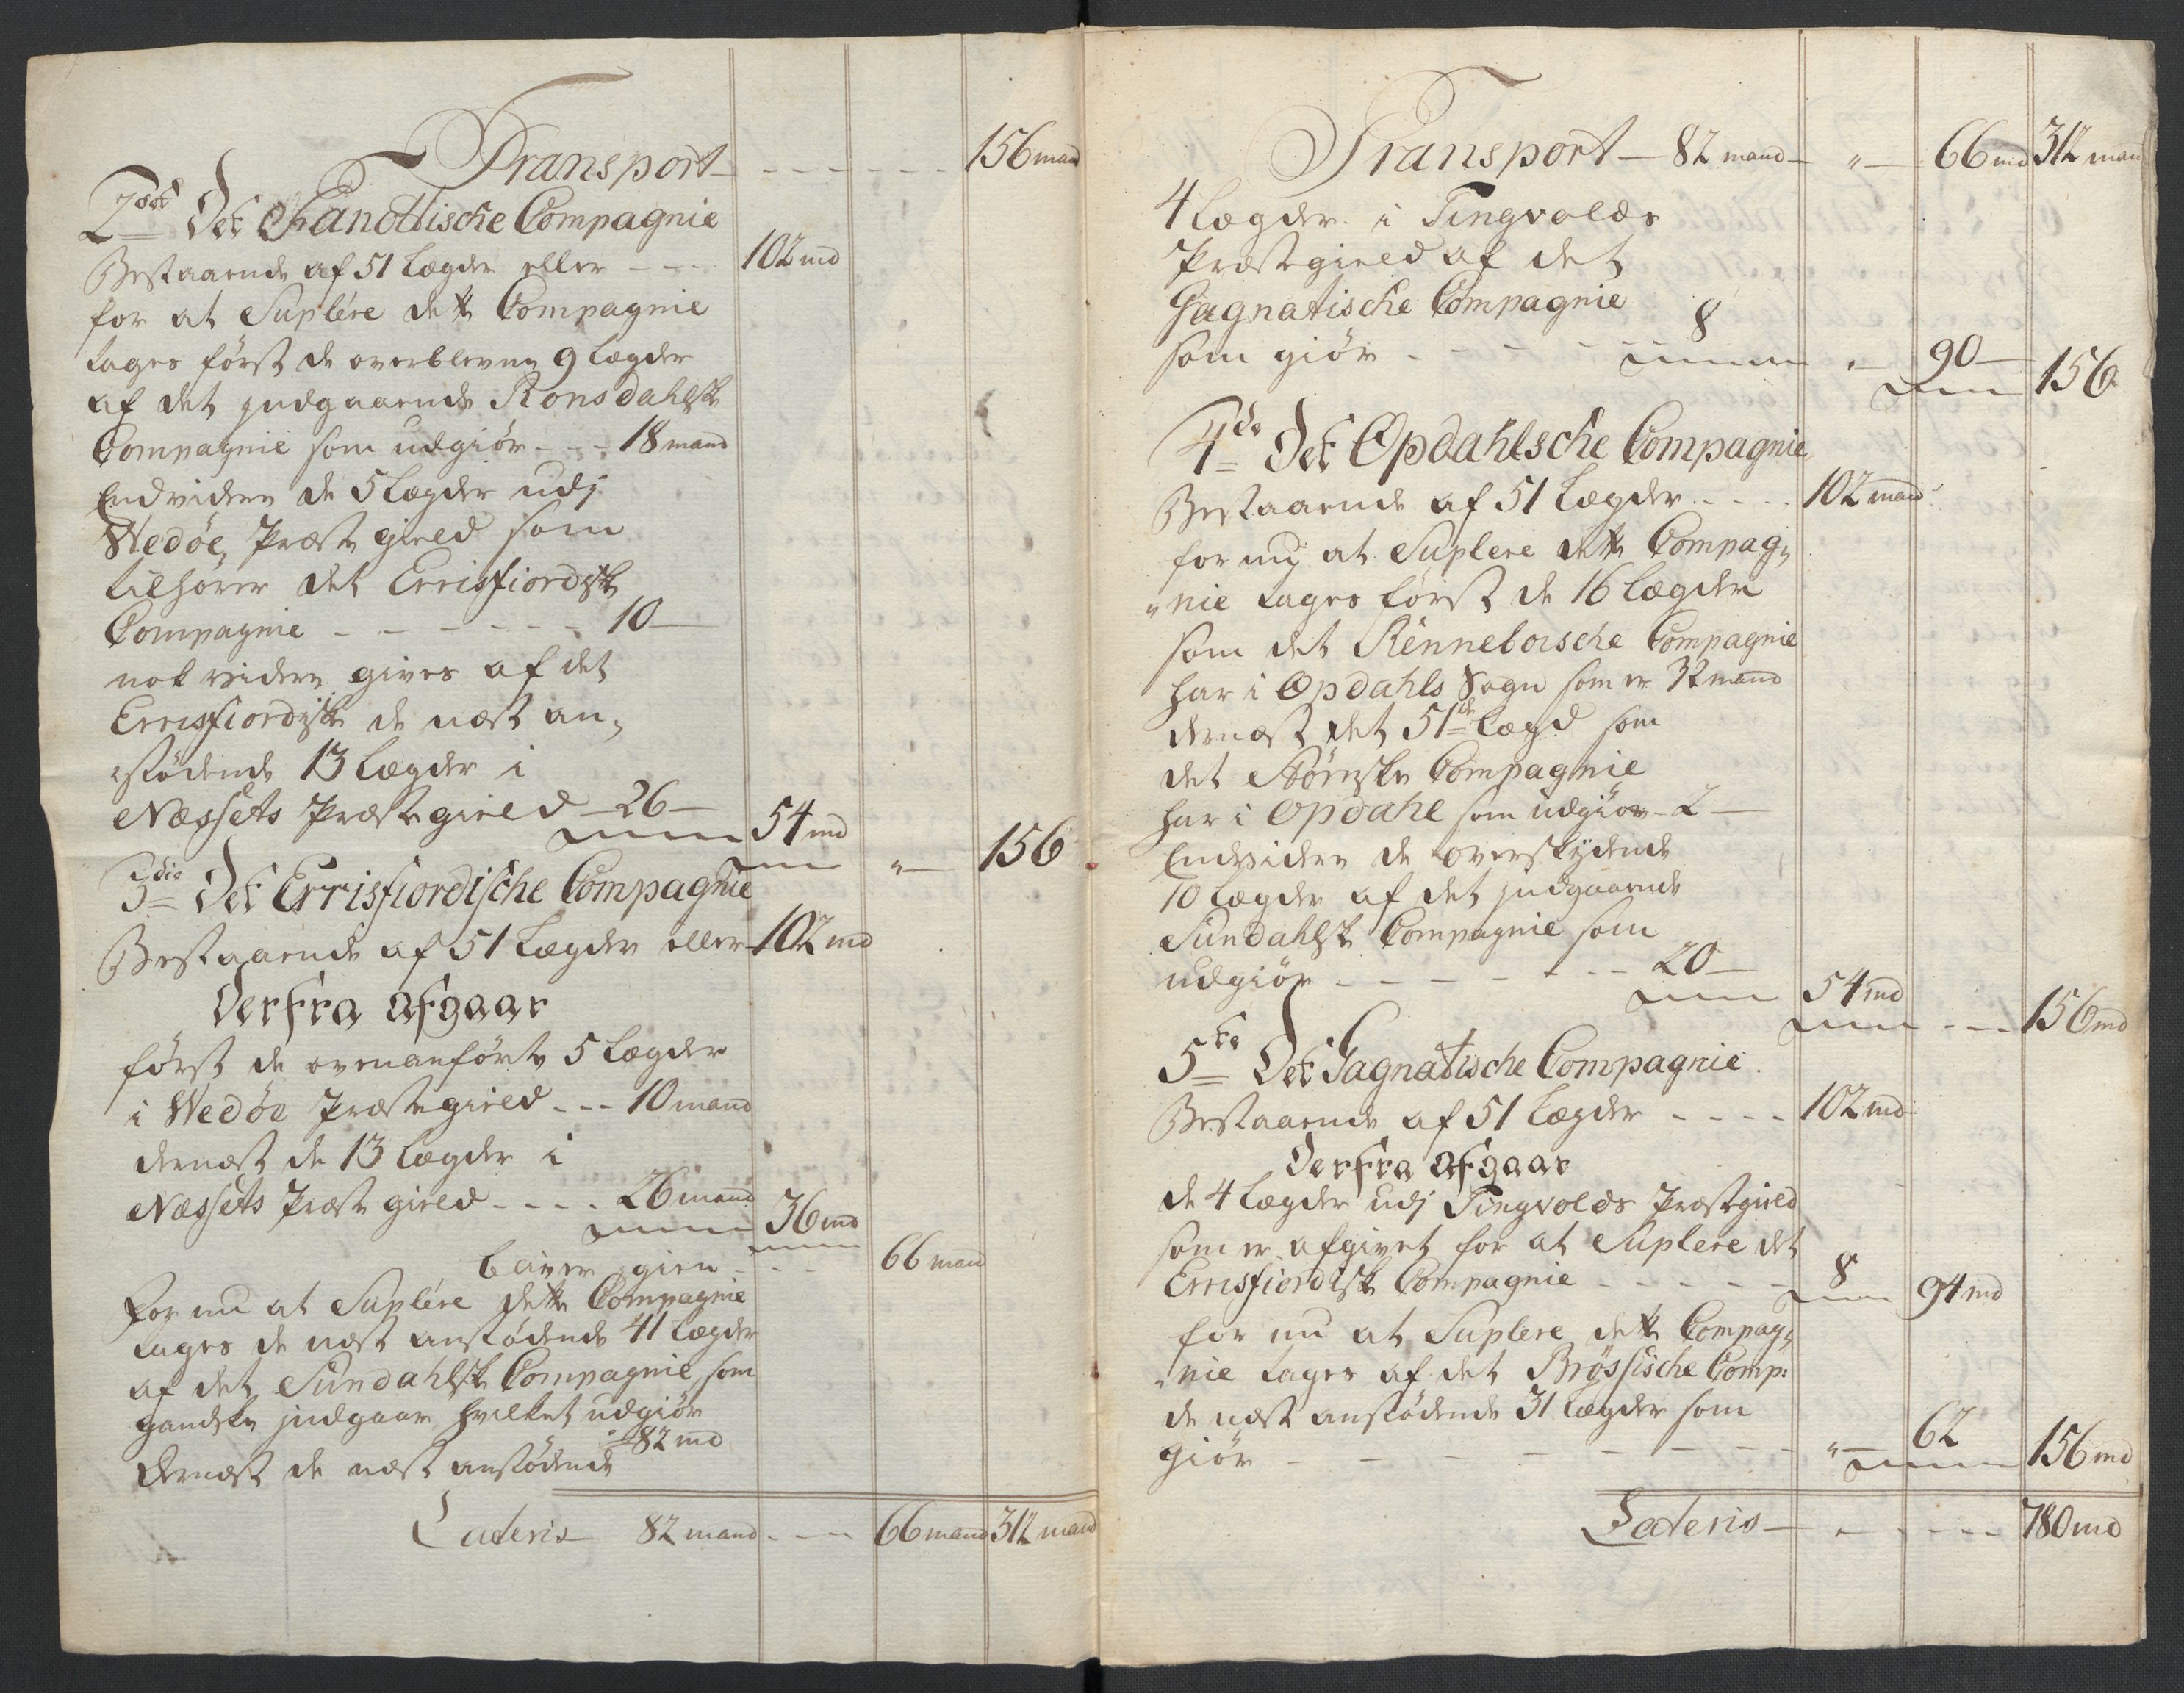 Transport - - - - - - 156 mand
2det Det Fanottische Compagnie
Bestaaende af 51 Lægder eller - - - 102 md
for at Suplére dette Compagnie
tages først de overblevne 9 Lægder
af det indgaaende Romsdahlske
Compagnie som udgiør - - - 18 mand
Endvidere de 5 Lægder udj
Wedøe Præstegield som
tilhører det Errisfiordiske
Compagnie - - - - - - 10 —
nok videre gives af det
Errisfiordiske de næst an„
„stødende 13 Lægder i
Næssets Præstegield — 26 — 54 md „ — 156
3die Det Errisfiordische Compagnie
Bestaaende af 51 Lægder eller 102 md
Derfra afgaar
først de ovenanførte 5 Lægder
i Wedøe Præstegield - - - 10 mand
dernæst de 13 Lægder i
Næssets Præstegield - - - - 26 mand 36 md
bliver igien - - - 66 mand
for nu at Suplére dette Compagnie
tages de næst anstødende 41 Lægder
af det Sundahlske Compagnie, som
gandske indgaar hvilket udgiør
82 md
dernæst de næst anstødende
Lateris — 82 mand - - - 66 mand 312 mand
Transport — 82 mand — „ — 66 md 312 mand
4 Lægder i Tingvolds
Præstegield af det
Gagnatische Compagnie
som giør - - - - - 8 „ — 90 — 156
4de Det Opdahlsche Compagnie
Bestaaende af 51 Lægder - - - - 102 mand
for nu at Suplere dette Compag„
„nie tages først de 16 Lægder
som det Renneboische Compagnie
har i Opdahls Sogn som er 32 mand
dernæst det 51de Lægd som
det Størenske Compagnie
har i Opdahl som udgiør - 2 —
Endvidere de overskydende
10 Lægder af det indgaaende
Sundahlske Compagnie som
udgiør - - - - - - - 20 — 54 md - - - 156 md
5te Det Gagnatische Compagnie
Bestaaende af 51 Lægder - - - - 102 md
Derfra afgaar
de 4 Lægder udj Tingvolds Præstegield
som er afgivet for at Suplere det
Errisfiordiske Compagnie - - - - - 8 94 md
for nu at Suplere dette Compag„
„nie tages af det Brøssische Comp:
de næst anstødende 31 Lægder som
giør - - - - - - - - „ — 62 156 md
Lateris — „ - - - - 780 md